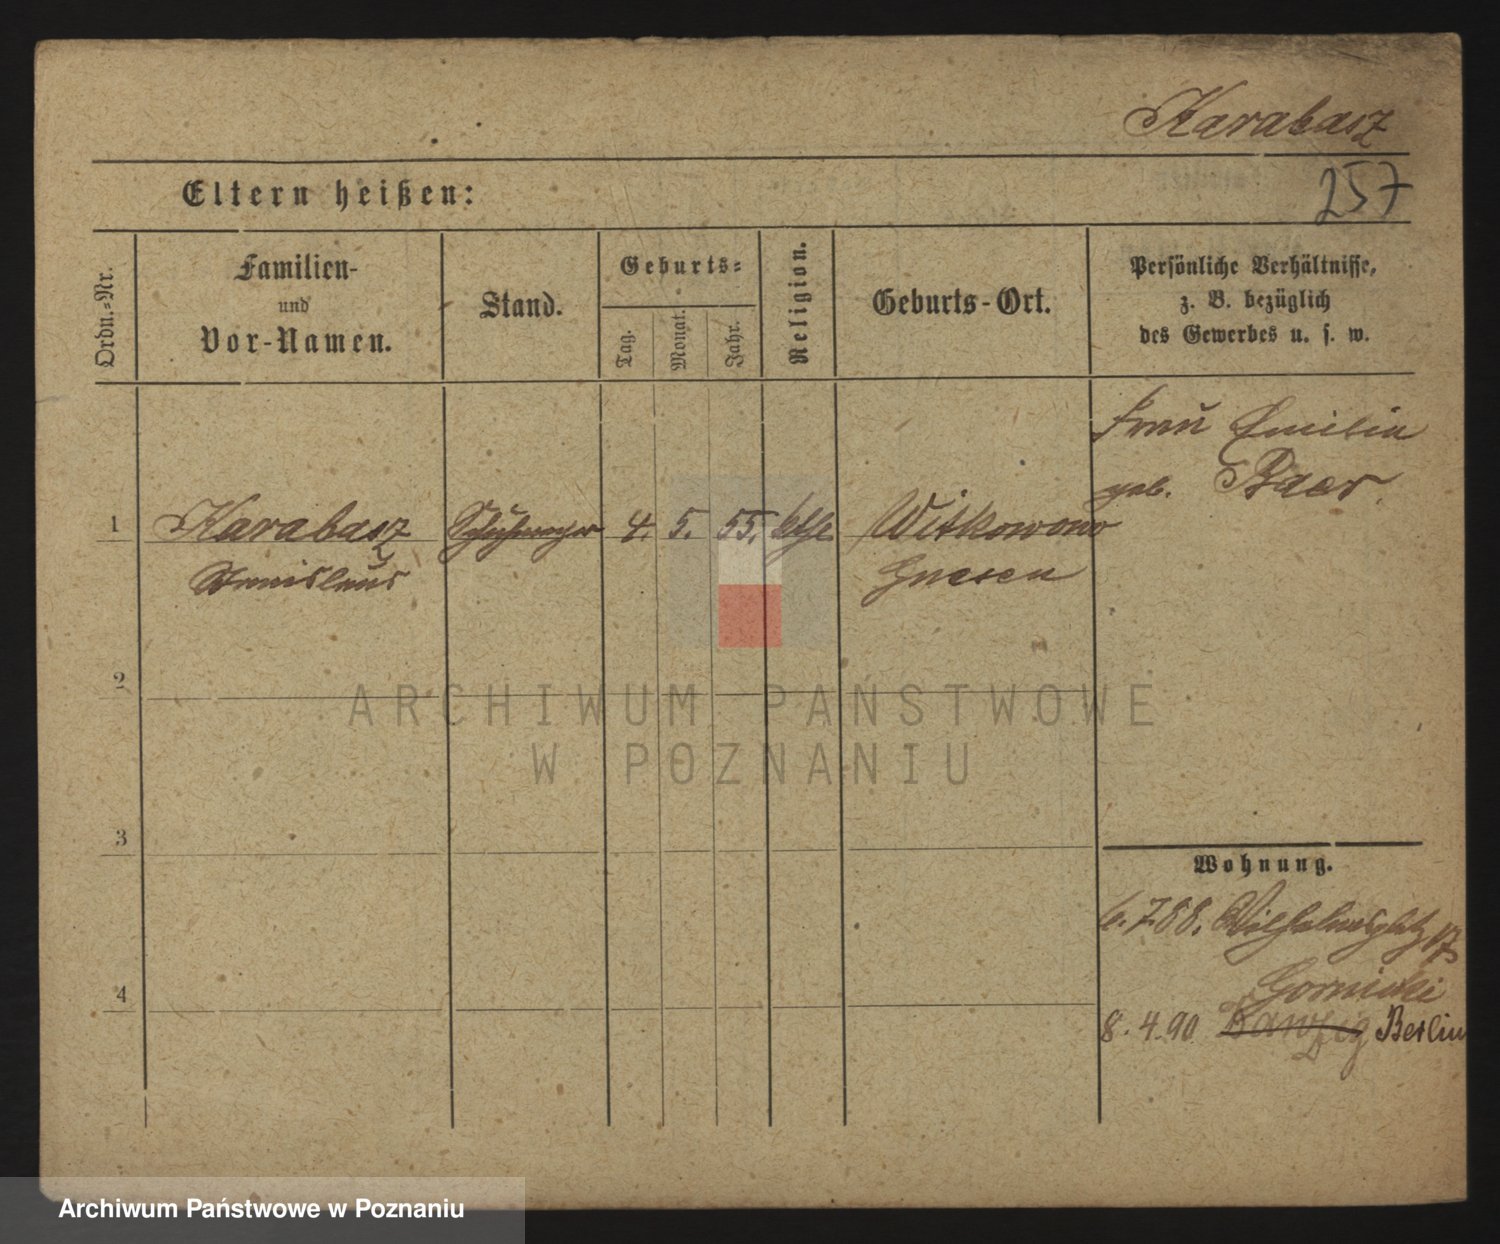 Karabasz
257
Eltern heißen:
Ordn.-Nr.
Familien-
und
Vor-Namen.
Stand.
Geburts-
Tag.
Monat.
Jahr.
Religion.
Geburts-Ort.
Persönliche Verhältnisse,
z. B. bezüglich
des Gewerbes u. s. w.
Frau Emilie
geb. Baer.
1 Karabasz 4. 5. 55. kthl Witkowono
Stanislaus Gnesen
2
ARCHIWUM PAŃSTWOWE
W POZNANIU
3
Wohnung.
6.7.88. Wilhelmsplatz 17
Gornicki
4
8.4.90 Danzig Berlin
Archiwum Państwowe w Poznaniu